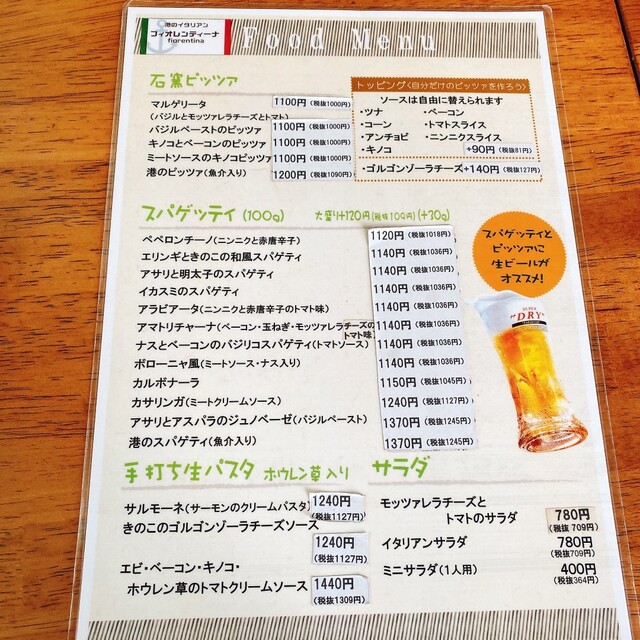 港のイタリアン
フィオレンティーナ
fiorentina
Food Menu
石窯ピッツァ
マルゲリータ 1100円(税抜1000円)
(バジルとモッツァレラチーズとトマト)
バジルペーストのピッツァ 1100円(税抜1000円)
キノコとベーコンのピッツァ 1100円(税抜1000円)
ミートソースのキノコピッツァ 1100円(税抜1000円)
港のピッツァ(魚介入り) 1200円(税抜1090円)
トッピング〈自分だけのピッツァを作ろう〉
ソースは自由に替えられます
・ツナ ・ベーコン
・コーン ・トマトスライス
・アンチョビ ・ニンニクスライス
・キノコ +90円(税抜81円)
・ゴルゴンゾーラチーズ+140円(税抜127円)
スパゲッティ(100g) 大盛り+120円(税抜109円)(+30g)
ペペロンチーノ(ニンニクと赤唐辛子) 1120円(税抜1018円)
エリンギときのこの和風スパゲティ 1140円(税抜1036円)
アサリと明太子のスパゲティ 1140円(税抜1036円)
イカスミのスパゲティ 1140円(税抜1036円)
アラビアータ(ニンニクと赤唐辛子のトマト味) 1140円(税抜1036円)
アマトリチャーナ(ベーコン・玉ねぎ・モッツァレラチーズの 1140円(税抜1036円)
トマト味)
ナスとベーコンのバジリコスパゲティ(トマトソース) 1140円(税抜1036円)
ボローニャ風(ミートソース・ナス入り) 1140円(税抜1036円)
カルボナーラ 1150円(税抜1045円)
カサリンガ(ミートクリームソース) 1240円(税抜1127円)
アサリとアスパラのジュノベーゼ(バジルペースト) 1370円(税抜1245円)
港のスパゲティ(魚介入り) 1370円(税抜1245円)
スパゲッティと
ピッツァに
生ビールが
オススメ!
SUPER
"DRY"
手打ち生パスタ ホウレン草入り
サルモーネ(サーモンのクリームパスタ) 1240円
(税抜1127円)
きのこのゴルゴンゾーラチーズソース
1240円
(税抜1127円)
エビ・ベーコン・キノコ・
ホウレン草のトマトクリームソース 1440円
(税抜1309円)
サラダ
モッツァレラチーズと
トマトのサラダ 780円
(税抜 709円)
イタリアンサラダ 780円
(税抜709円)
ミニサラダ(1人用) 400円
(税抜364円)